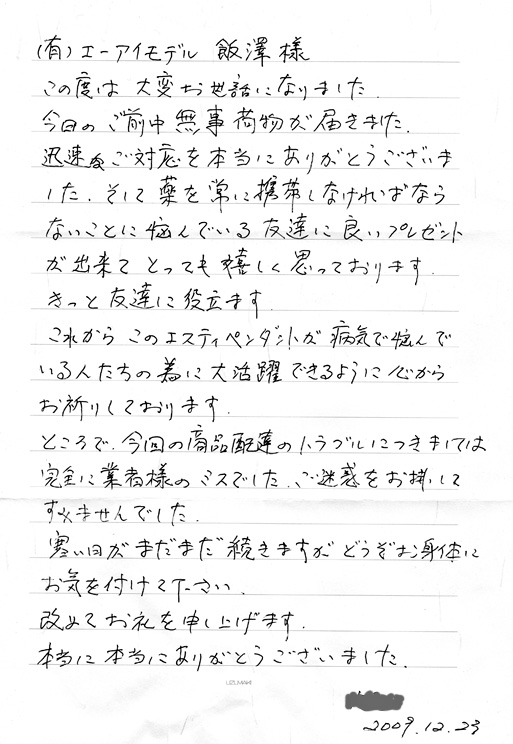 (有)エーアイモデル 飯澤様
この度は大変お世話になりました.
今日のご前中無事荷物が届きました.
迅速なご対応を本当にありがとうございま
した. そして薬を常に携帯しなければなら
ないことに悩んでいる友達に良いプレゼント
が出来てとっても嬉しく思っております.
きっと友達に役立ます.
これからこのエスティペンダントが病気で悩んで
いる人たちの為に大活躍できるように心から
お祈りしております.
ところで、今回の商品配達のトラブルにつきましては
完全に業者様のミスでした. ご迷惑をお掛して
すみませんでした.
寒い日がまだまだ続きますがどうぞお身体に
お気を付けて下さい.
改めてお礼を申し上げます.
本当に本当にありがとうございました.
UZUMAKI
2009.12.23